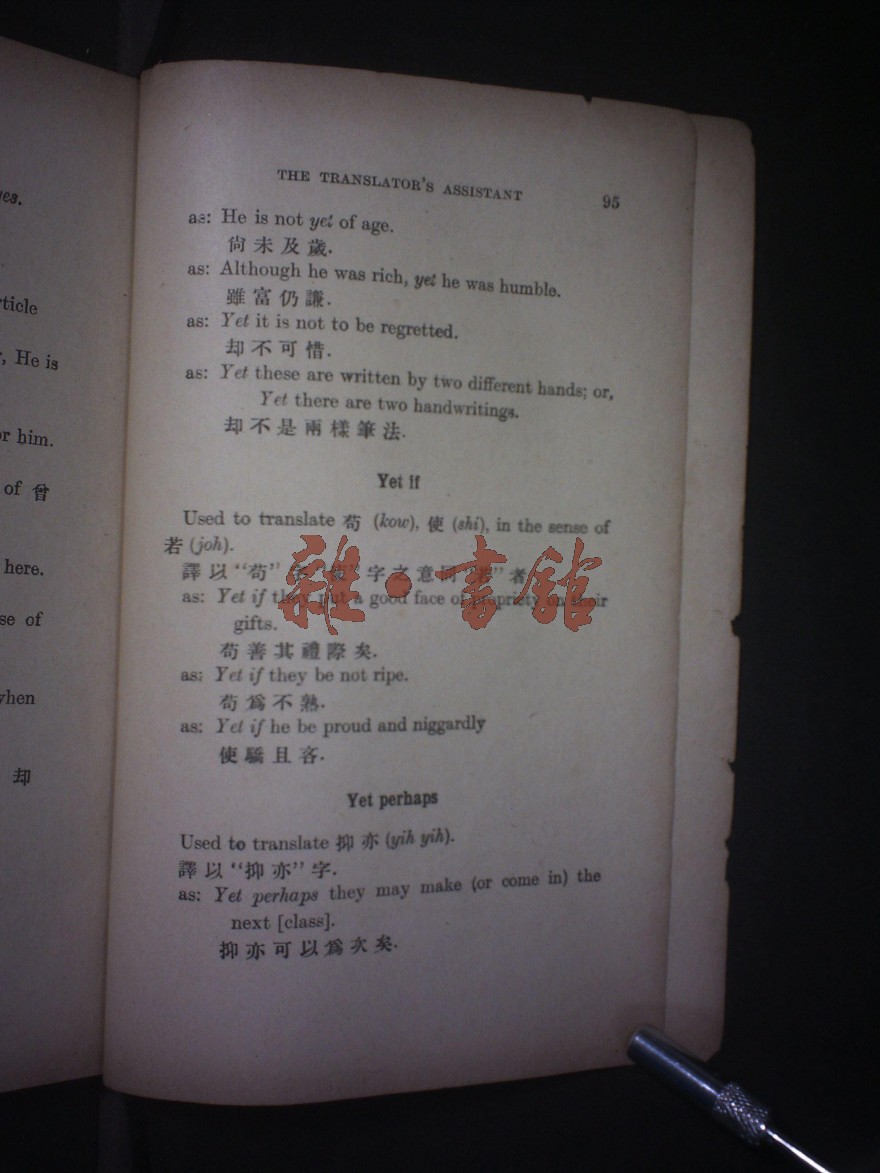 yes.
ticle
, He is
or him.
of 曾
here.
se of
when
却
THE TRANSLATOR'S ASSISTANT 95
as: He is not yet of age.
尙未及歲.
as: Although he was rich, yet he was humble.
雖富仍謙.
as: Yet it is not to be regretted.
却不可惜.
as: Yet these are written by two different hands; or,
Yet there are two handwritings.
却不是兩樣筆法.
Yet if
Used to translate 苟 (kow), 使 (shi), in the sense of
若 (joh).
譯以“苟”字“使”字之意同“若”者
as: Yet if they put a good face of propriety on their
gifts.
苟善其禮際矣.
as: Yet if they be not ripe.
苟爲不熟.
as: Yet if he be proud and niggardly
使驕且吝.
Yet perhaps
Used to translate 抑亦 (yih yih).
譯以“抑亦”字.
as: Yet perhaps they may make (or come in) the
next [class].
抑亦可以爲次矣.
雜·書館